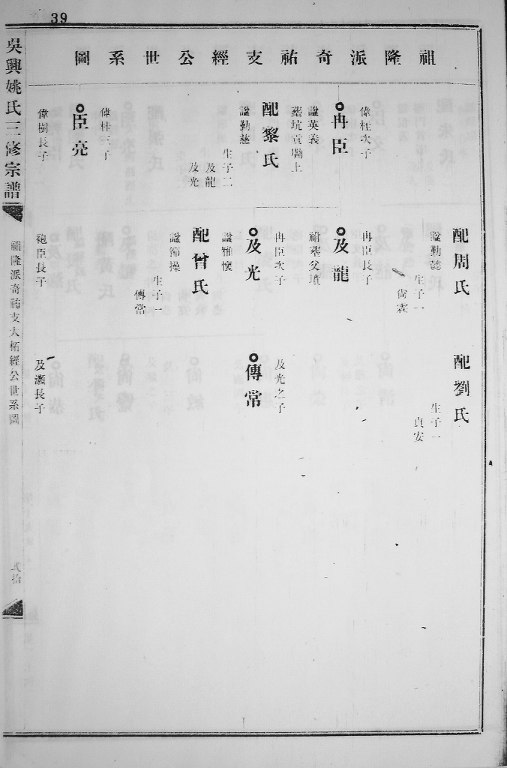 39
祖隆派奇祐支經公世系圖
吳興姚氏三修宗譜
祖隆派奇祐支大栢經公世系圖
配周氏
諡勤懿
生子一
配劉氏
生子一
貞安
偉柱次子
冉臣
諡英義
配黎氏
諡勤慈
生子二
及龍
及光
冉臣長子
及龍
祔塟父墳
冉臣次子
及光
諡雅懷
配曾氏
諡節操
生子一
傳常
及光之子
傳常
偉柱三子
臣亮
偉樹長子
袍臣長子
及灝長子